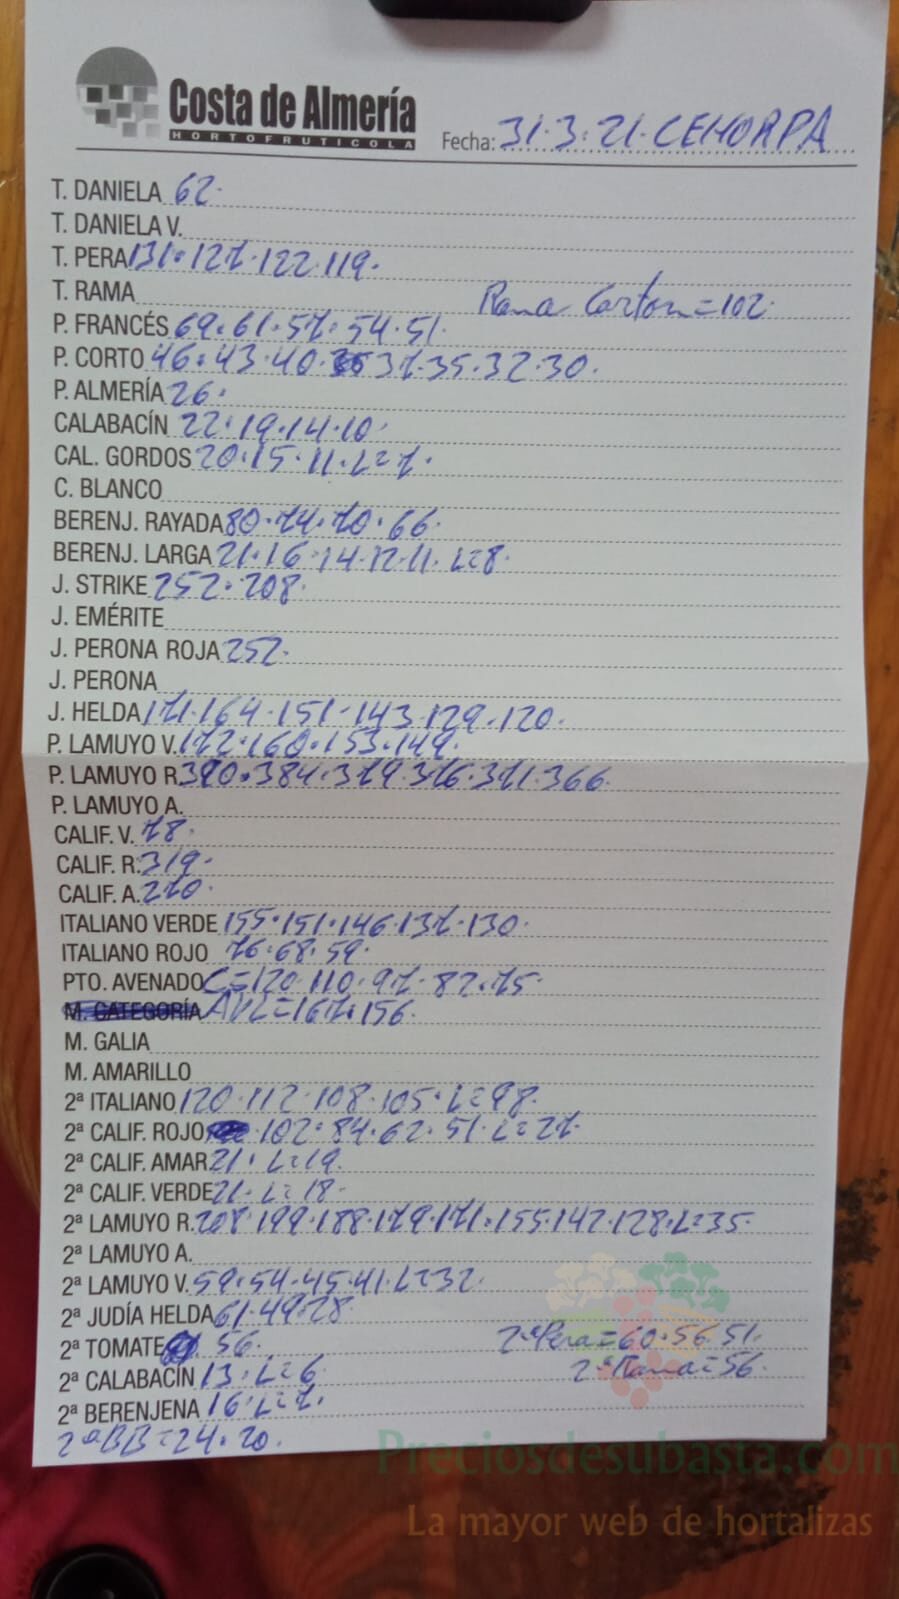 Costa de Almería
HORTOFRUTICOLA
Fecha: 31.3.21.CEHORPA
T. DANIELA 62.
T. DANIELA V.
T. PERA 131.127.122.119.
T. RAMA Rama Carton=102.
P. FRANCÉS 69.61.57.54.51.
P. CORTO 46.43.40.37.35.32.30.
P. ALMERÍA 26.
CALABACÍN 22.19.14.10.
CAL. GORDOS 20.15.11.L=7.
C. BLANCO
BERENJ. RAYADA 80.74.70.66.
BERENJ. LARGA 21.16.14.12.11.L=8.
J. STRIKE 252.208.
J. EMÉRITE
J. PERONA ROJA 252.
J. PERONA
J. HELDA 171.164.151.143.129.120.
P. LAMUYO V. 172.160.153.149.
P. LAMUYO R. 390.384.379.376.371.366.
P. LAMUYO A.
CALIF. V. 78.
CALIF. R. 319.
CALIF. A. 270.
ITALIANO VERDE 155.151.146.137.130.
ITALIANO ROJO 76.68.59.
PTO. AVENADO C=120.110.97.82.75.
M. CATEGORÍA =167.156.
M. GALIA
M. AMARILLO
2ª ITALIANO 120.112.108.105.L=98.
2ª CALIF. ROJO 102.84.62.51.L=27.
2ª CALIF. AMAR 21.L=19.
2ª CALIF. VERDE 21.L=18.
2ª LAMUYO R. 208.199.188.179.171.155.142.128.L=35.
2ª LAMUYO A.
2ª LAMUYO V. 59.54.45.41.L=32.
2ª JUDÍA HELDA 61.49.28
2ª TOMATE 56. 2ªPera=60.56.51.
2ªRama=56.
2ª CALABACÍN 13.L=6
2ª BERENJENA 16.L=7.
2ªBB=24.20.
Preciosdesubasta.com
La mayor web de hortalizas